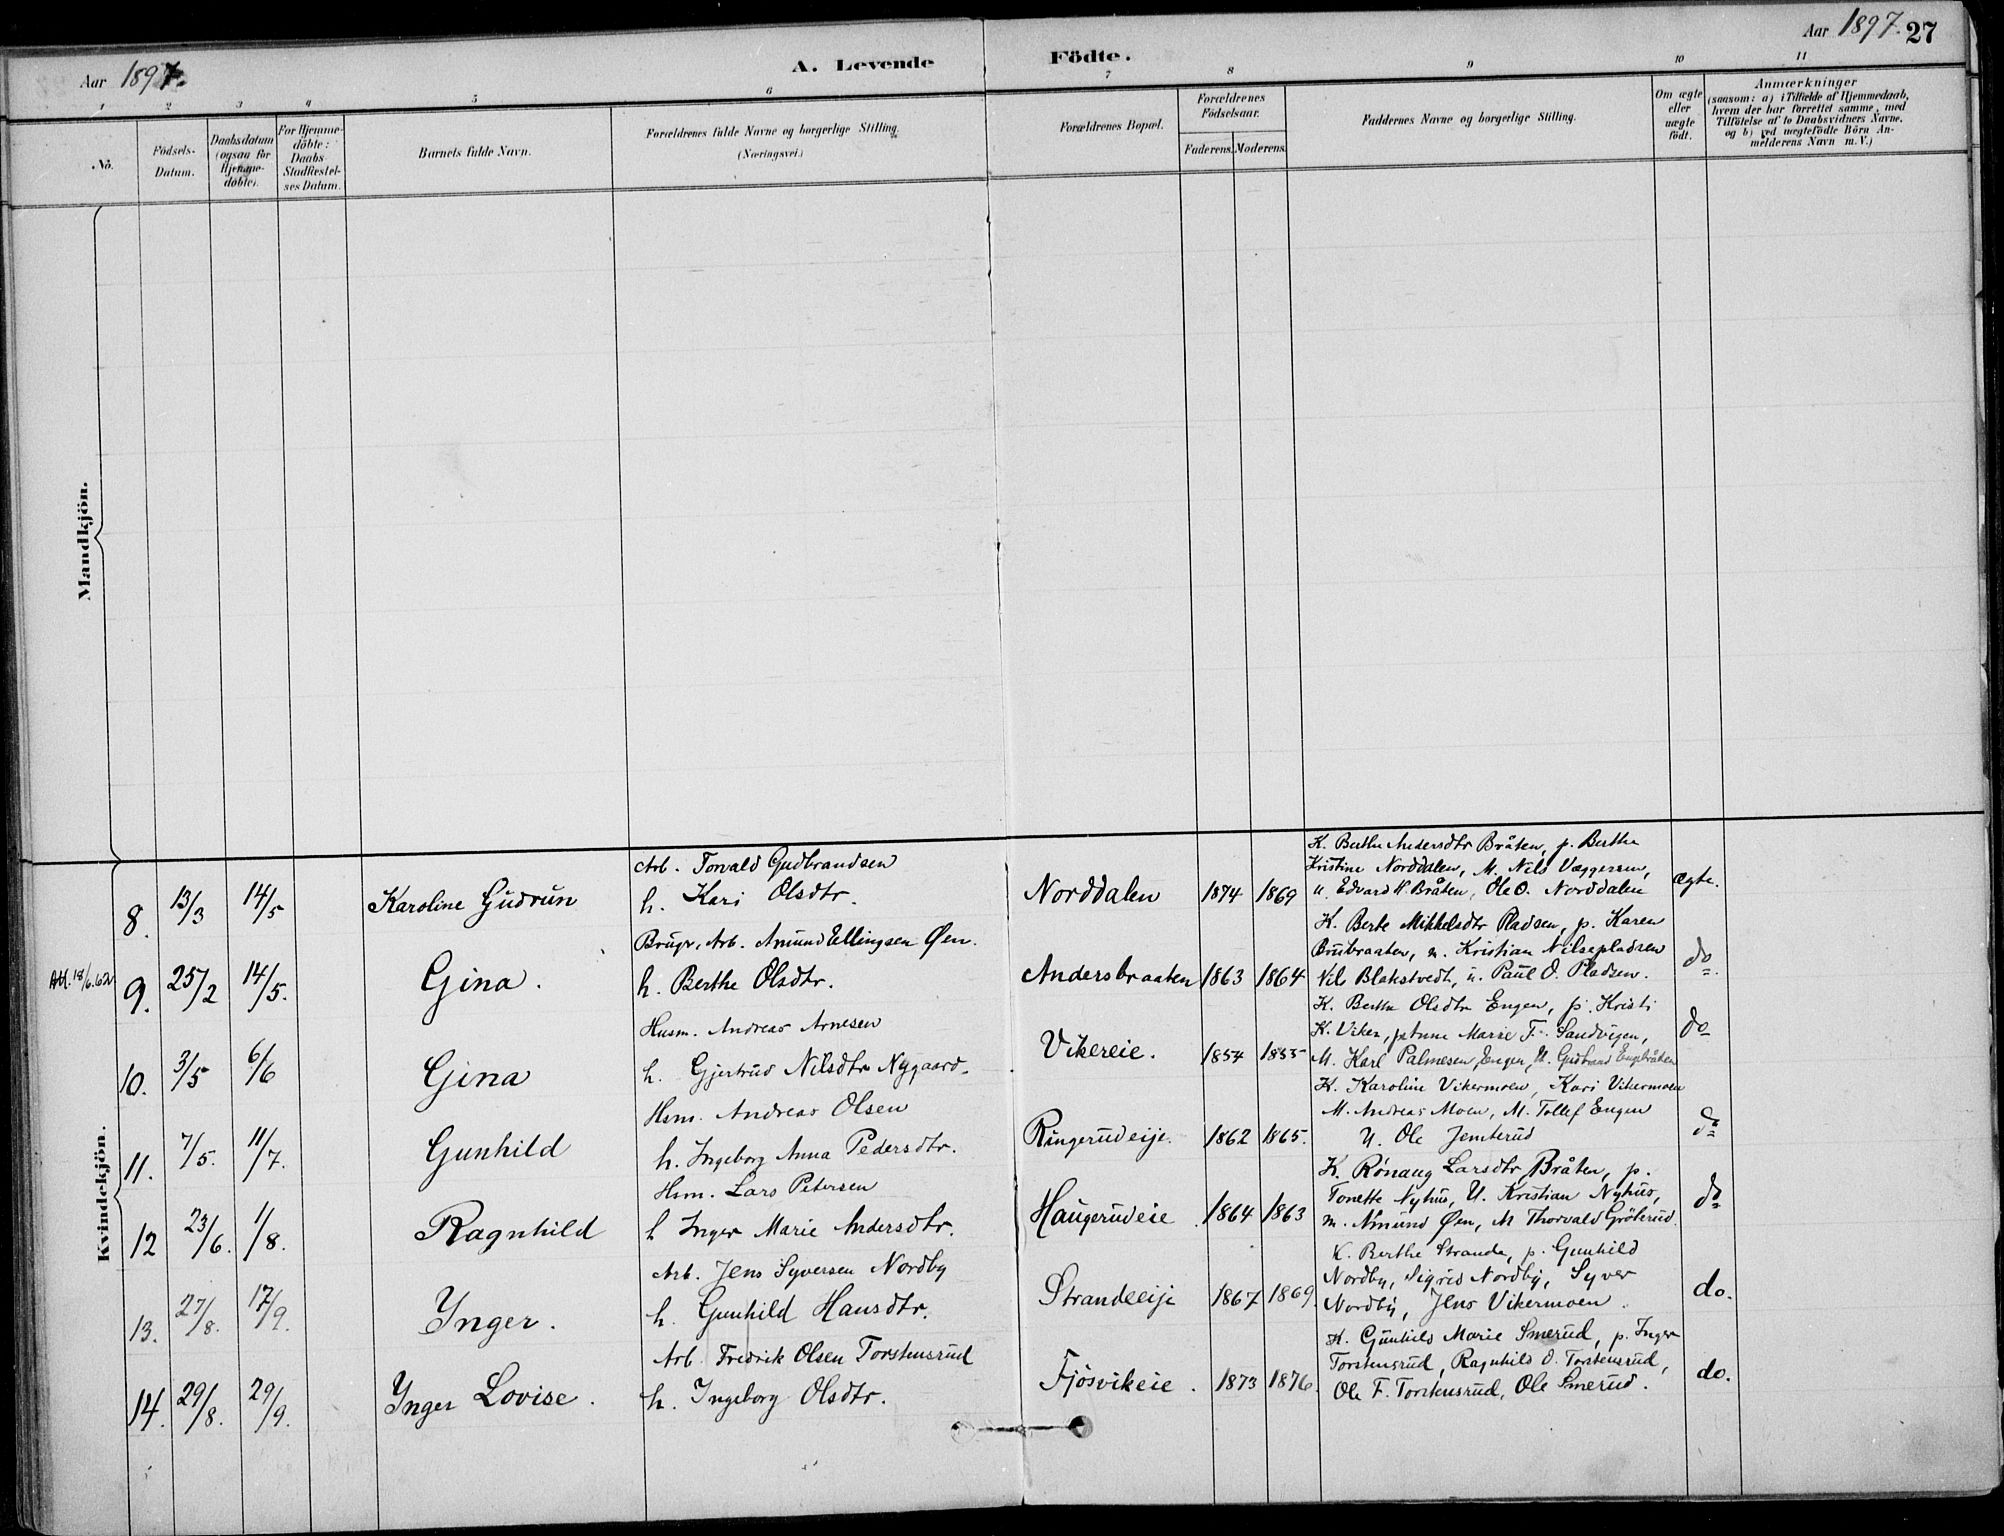 Aar 1897.
A. Levende
Födte.
Aar 1897. 27
1 2 3 4 5 6 7 8 9 10 11
No.
Födsels-
Datum.
Daabsdatum
(ogsaa for
Hjemme-
döbte).
For Hjemme-
döbte:
Daabs-
Stadfæstel-
ses Datum.
Barnets fulde Navn.
Forældrenes fulde Navne og borgerlige Stilling.
(Næringsvei.)
Forældrenes Bopæl.
Forældrenes
Födselsaar.
Faderens. Moderens.
Faddernes Navne og borgerlige Stilling.
Om ægte
eller
uægte
födt.
Anmærkninger
(saasom: a) i Tilfælde af Hjemmedaab,
hvem der har forrettet samme, med
Tilföielse af to Daabsvidners Navne.
og b) ved uægtefödte Börn An-
melderens Navn m. V.)
Mandkjön.
Kvindekjön.
8. 13/3 14/5 Karoline Gudrun
Arb. Torvald Gudbrandsen
h. Kari Olsdtr.
Norddalen 1874 1869
K. Berthe Andersdtr Bråten, p. Berthe
Kristine Norddalen, M. Nils Væggersen,
u. Edvard H. Bråten, Ole O. Norddalen
ægte.
Att. 18/6.62 9. 25/2 14/5. Gina.
Brugr, Arb. Amund Ellingsen Øen.
h. Berthe Olsdtr.
Andersbraaten 1863 1864
K. Berte Mikkelsdtr Pladsen, p. Karen
Brubraaten, u. Kristian Nilsepladsen
Nil Blakstvedt, u. Paul O. Pladsen.
do.
10. 3/5 6/6 Gina
Husm. Andreas Arnesen
h. Gjertrud Nilsdtr Nygaard.
Vikereie. 1854 1855
K. Berthe Olsdtr Engen, p. Kristi
K. Viken, p Anne Marie F. Sandvigen,
M. Karl Palmesen Engen, U. Gudbrand Engebråten
do
11. 7/5. 11/7. Gunhild
Hsm. Andreas Olsen
h. Ingeborg Anna Pedersdtr.
Ringerudeije. 1862 1865.
K. Karoline Vikermoen, Kari Vikermoen
M. Andreas Moen, M. Tollef Engen
U. Ole Jemterud
do
12 23/6. 1/8. Ragnhild
Hsm. Lars Petersen
h Inger Marie Andersdtr.
Haugerudeie 1864 1863
K. Rønaug Larsdtr Bråten, p.
Tonette Nyhus, U. Kristian Nyhus,
m. Amund Øen, M Thorvald Gröterud.
do
13. 27/8. 17/9. Ynger.
Arb. Jens Syversen Nordby
h. Gunhild Hansdtr.
Strandeeije 1867 1869.
K. Berthe Strande, p. Gunhild
Nordby, Sigrid Nordby, Syver
Nordby, Jens Vikermoen.
do.
14. 29/8. 29/9. Ynger Lovise.
Arb. Fredrik Olsen Torstensrud
h. Ingeborg Olsdtr.
Fjösvikeie. 1873 1876.
K. Gunhild Marie Smerud, p. Inger
Torstensrud, Ragnhild O. Torstensrud,
Ole F. Torstensrud, Ole Smerud.
do.